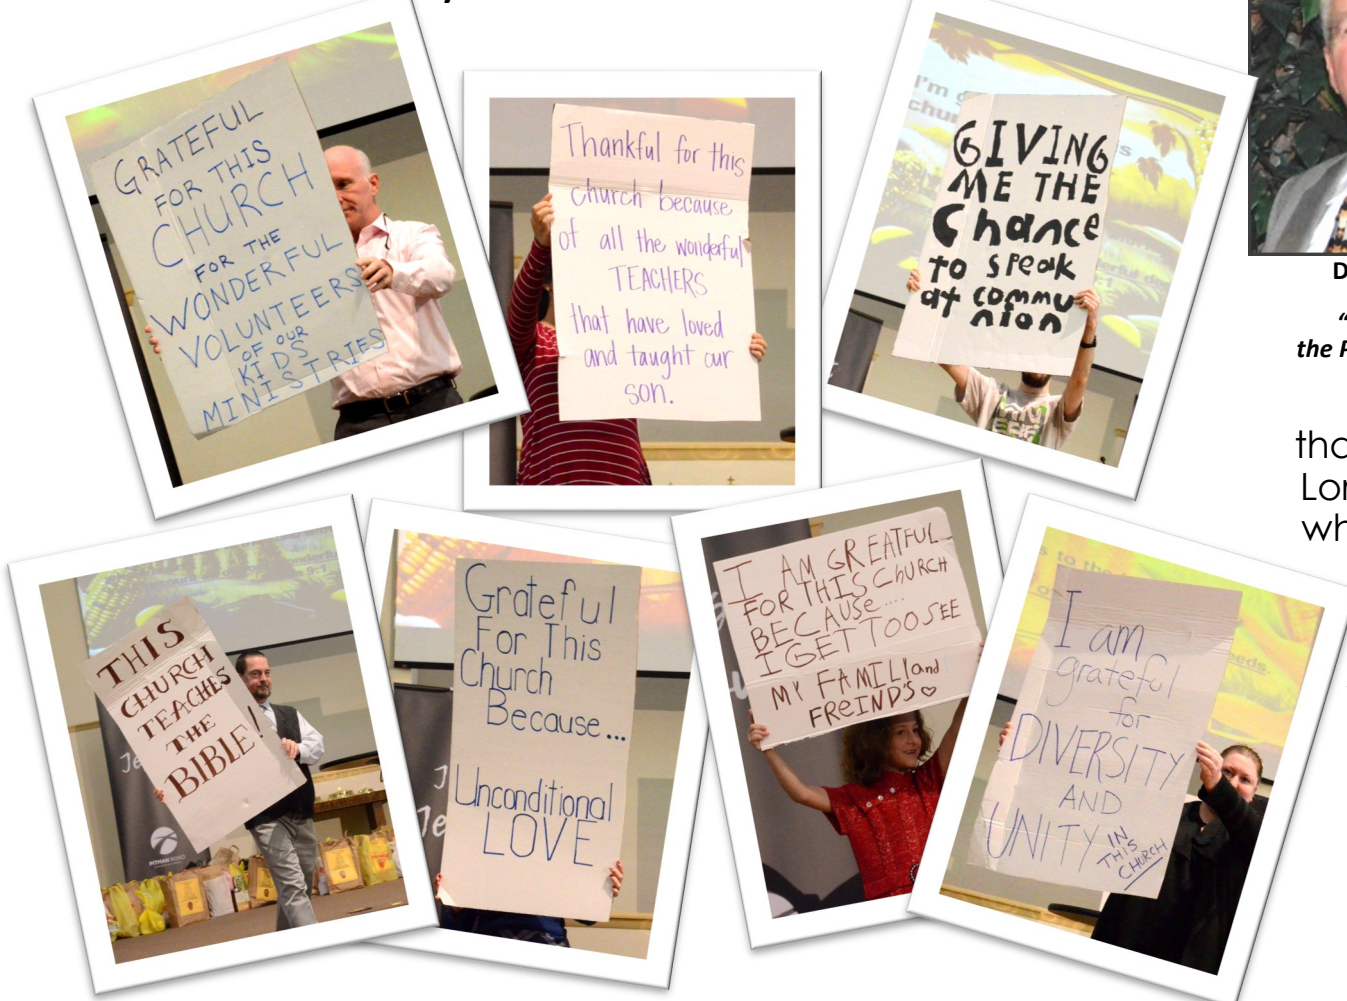 GRATEFUL
FOR THIS
CHURCH
FOR THE
WONDERFUL
VOLUNTEERS
OF OUR
KIDS
MINISTRIES
Thankful for this
church because
of all the wonderful
TEACHERS
that have loved
and taught our
son.
I'm g
chur
GIVING
ME THE
Chance
to speak
at commu
nion
D
"
the P
tha
Lor
wh
9:1
THIS
CHURCH
TEACHES
THE
BIBLE!
Je
PITMAN ROAD
Grateful
For This
Church
Because...
Unconditional
LOVE
J
Je
I AM GREATFUL
FOR THIS CHURCH
BECAUSE....
I GET TOO SEE
MY FAMILY and
FREINDS ♡
s to the
eeds.
I am
grateful
for
DIVERSITY
AND
UNITY IN
THIS
CHURCH